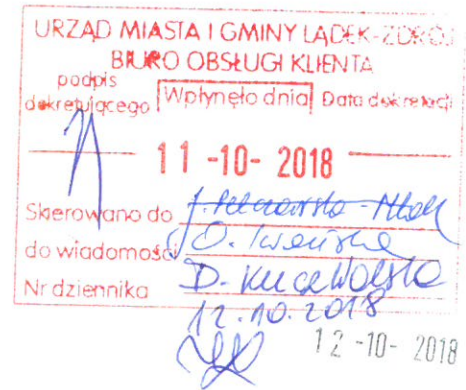 URZĄD MIASTA I GMINY LĄDEK-ZDRÓJ
BIURO OBSŁUGI KLIENTA
podpis
dekretującego Wpłynęło dnia Data dekretacji
11 -10- 2018
Skierowano do
do wiadomości O.
Nr dziennika D.
12.10.2018
12 -10- 2018